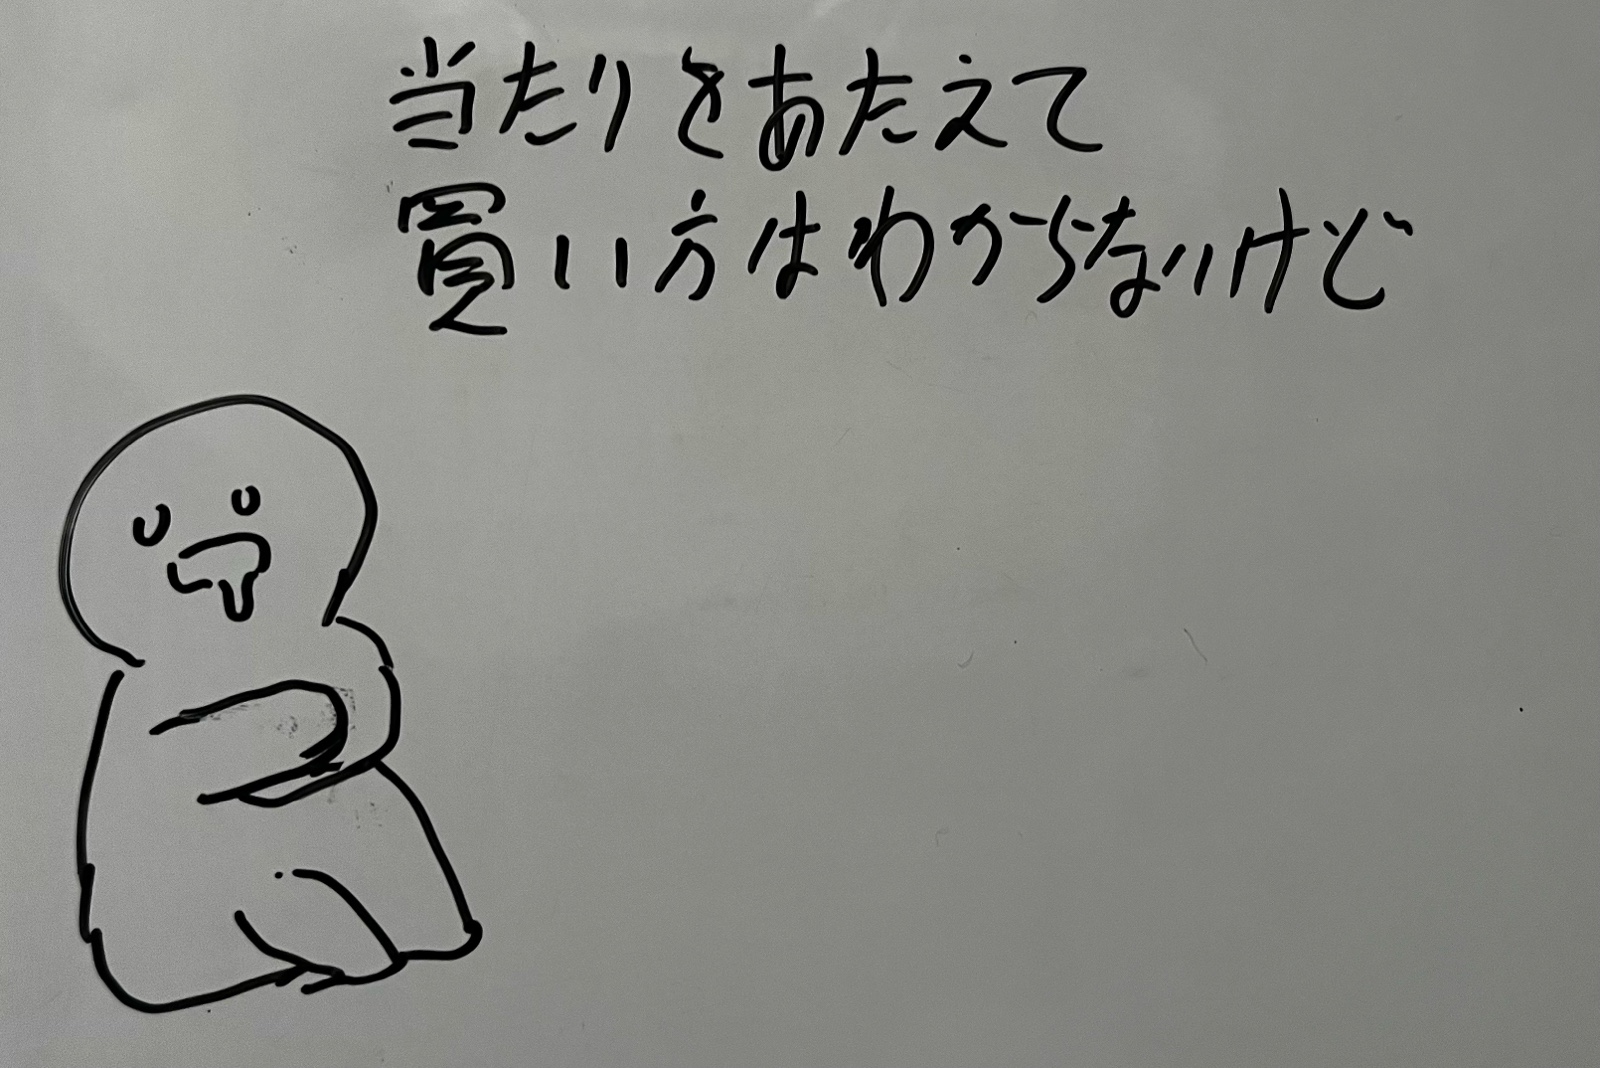 当たりをあたえて
買い方はわからないけど